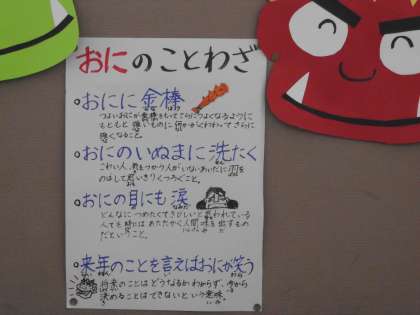 おにのことわざ
おにに金棒
つよいおにが金棒をもってさらにつよくなるように
もともと強いものに何かがくわわってさらに
強くなること。
おにのいぬまに洗たく
こわい人、気をつかう人がいないあいだに羽を
のばして思いきりくつろぐこと。
おにの目にも涙
どんなにつめたくてきびしいと思われている
人でも時にはあたたかく人間味を出すもの
だということ。
来年のことを言えばおにが笑う
将来のことはどうなるかわからず、今から
決めることはできないという意味。